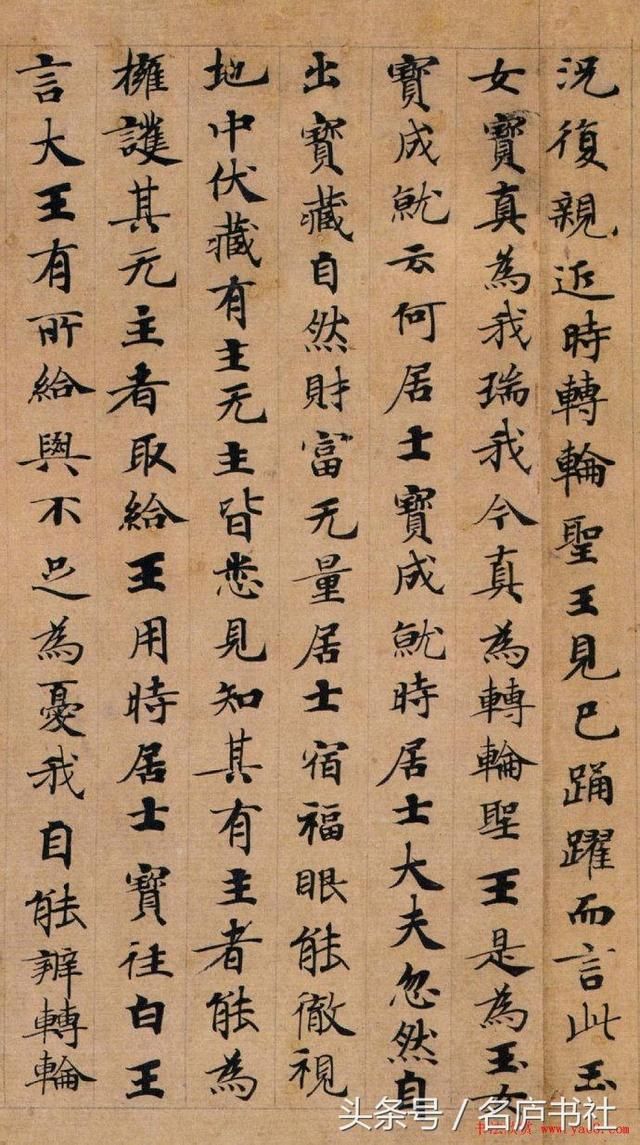 況復親近時轉輪聖王見已踊躍而言此玉
女寶真為我瑞我今真為轉輪聖王是為玉女
寶成就云何居士寶成就時居士大夫忽然自
出寶藏自然財富无量居士宿福眼能徹視
地中伏藏有主无主皆悉見知其有主者能為
擁護其无主者取給王用時居士寶往白王
言大王有所給與不足為憂我自能辦轉輪
头条号 / 名庐书社